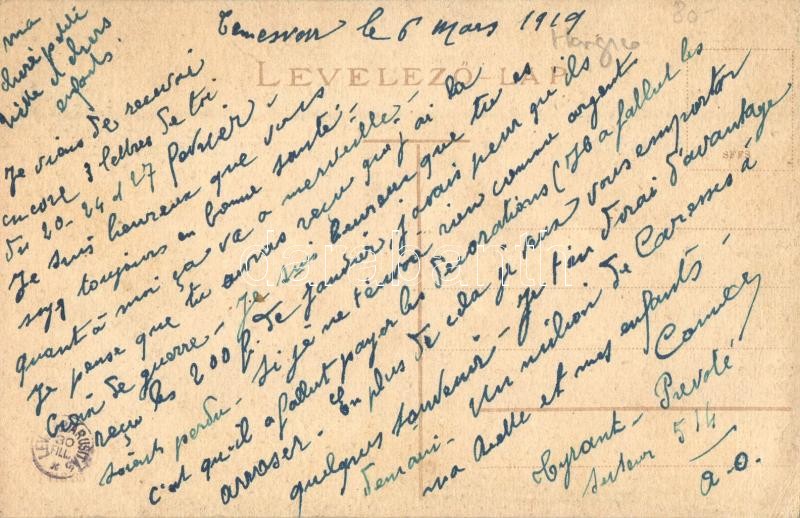 Temesvar le 6 Mars 1919
ma
chère petite
Nette et chers
enfants.
LEVELEZŐ-LAP
Je viens de recevoir
encore 3 lettres de toi
du 20-24 et 27 février -
Je suis heureux que vous
soyez toujours en bonne santé -
quant à moi ça va à merveille -
Je pense que tu auras reçu que j'ai la
Croix de guerre - Je suis heureux que tu es
reçu les 200 f. de janvier, j'avais peur qu'ils
soient perdu - Si je ne t'envoie rien comme argent
c'est qu'il a fallut payer les décorations (70 a fallut les
arroser. En plus de cela je veux vous emporter
quelques souvenir - Je t'en dirai d'avantage
demain. Un million de Caresses à
ma Nette et mes enfants -
Prevoté
Secteur 514
A. O.
30
FILL
darabanth